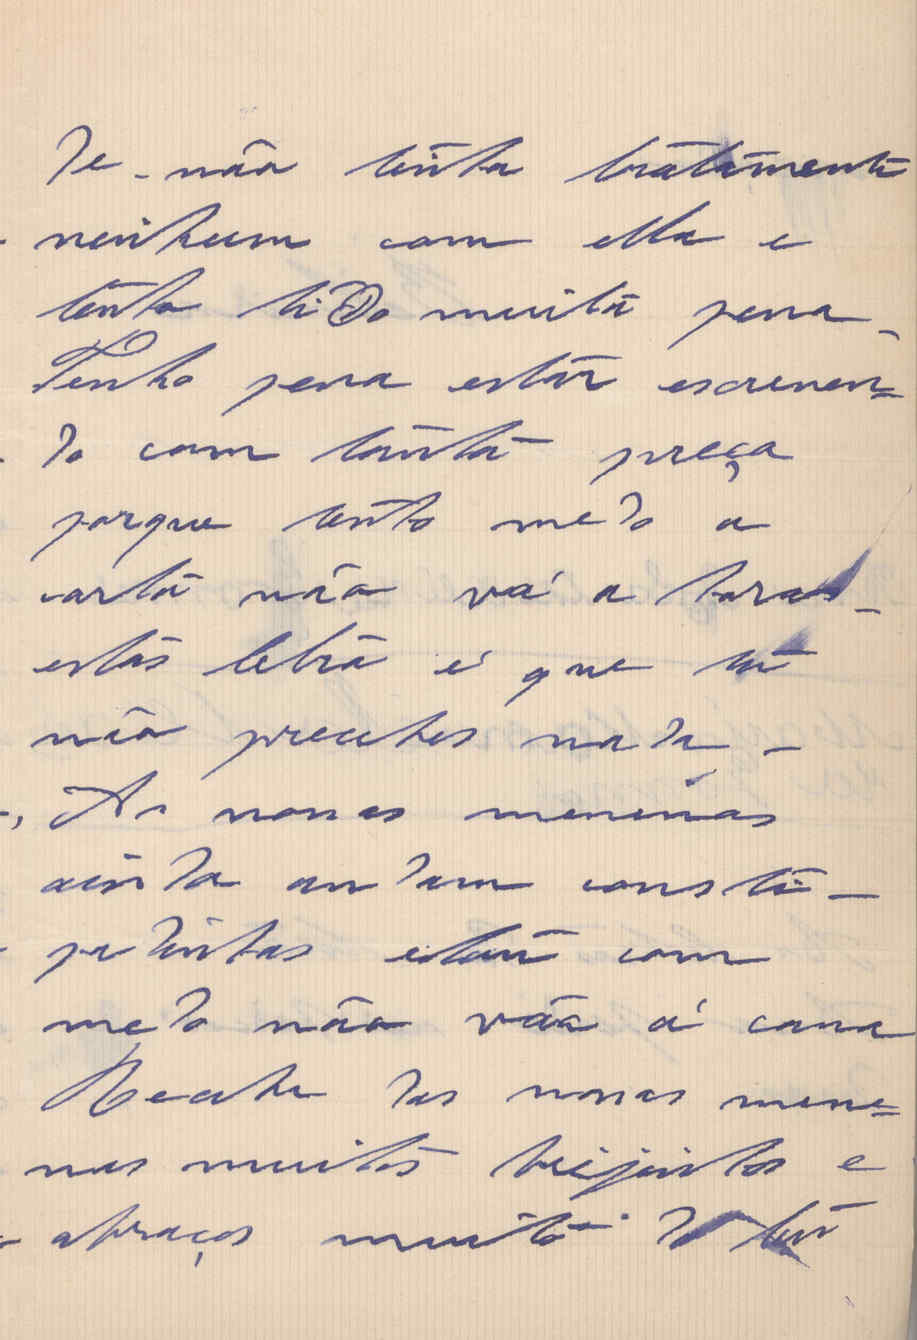 de - não tenho tratamento
nenhum com ella e
tenho tido muita pena -
Tenho pena estar escreven=
do com tanta preça
porque tenho medo a
carta não vá a horas -
estás letra é que tu
não precebes nada -
As nossas meninas
ainda andam consti -
padinhas estam com
medo não vão á cama
Recebe das nossas mene=
nas muitos beijinhos e
abraços muito do teu